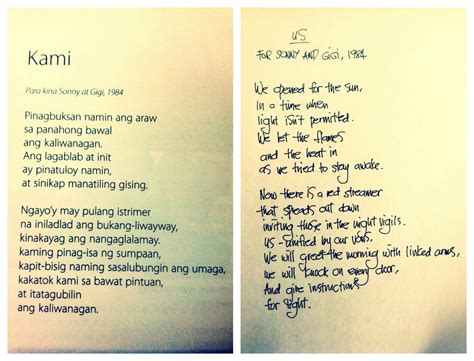 Kami
Para kina Sonny at Gigi, 1984
Pinagbuksan namin ang araw
sa panahong bawal
ang kaliwanagan.
Ang lagablab at init
ay pinatuloy namin,
at sinikap manatiling gising.
Ngayo'y may pulang istrimer
na iniladlad ang bukang-liwayway,
kinakayag ang nangaglalamay.
kaming pinag-isa ng sumpaan,
kapit-bisig naming sasalubungin ang umaga,
kakatok kami sa bawat pintuan,
at itatagubilin
ang kaliwanagan.
US
FOR SONNY AND GIGI, 1984
We opened for the sun,
In a time when
light isn't permitted.
We let the flames
and the heat in
as we tried to stay awake.
Now there is a red streamer
that speads out dawn
inviting those in the night vigils.
US - unified by our vows,
We will greet the morning with linked arms,
we will knock on every door,
And give instructions
for light.